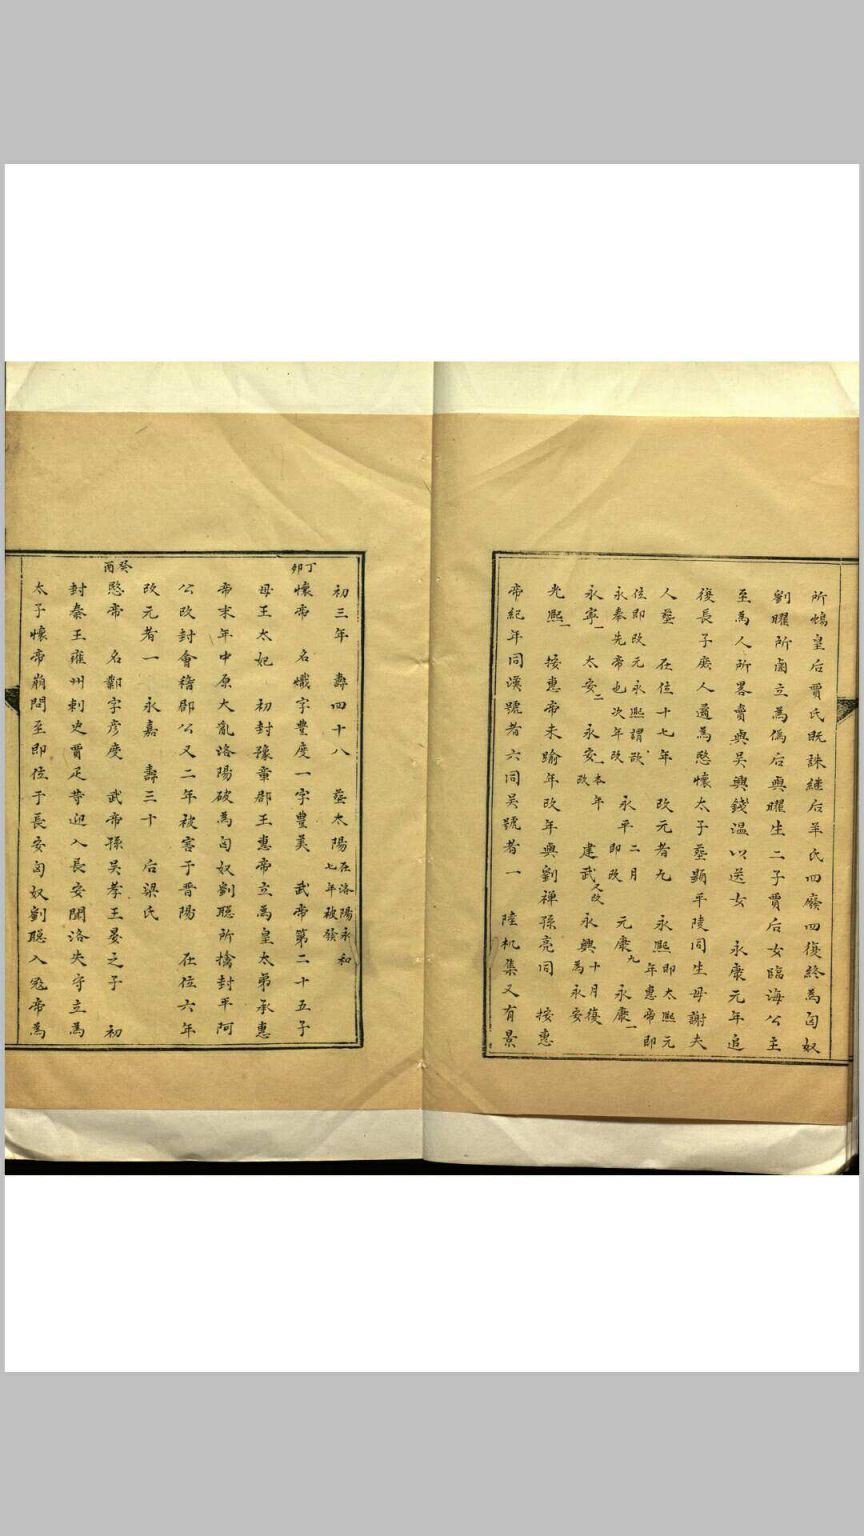 所鴆皇后賈氏既誅繼后羊氏四廢四復終為匈奴
劉曜所鹵立為偽后與曜生二子賈后女臨海公主
至為人所畧賣與吳興錢温以送女　永康元年追
復長子庶人遹為愍懷太子葬顯平陵同生母謝夫
人葬　在位十七年　改元者九　永熙即太熙元年惠帝即
位即改元永熙謂改永泰先帝也次年改　永平二月即改　元康九　永康一
永寧一　太安二　永安一本年改　建武又改　永興十月復為永安
光熙一　按惠帝未踰年改年與劉禪孫亮同　按惠
帝紀年同漢號者六同吳號者一　陸机集又有景
初三年　壽四十八　葬太陽在洛陽永和七年被發
丁卯
懷帝　名熾字豐度一字豐美　武帝第二十五子
母王太妃　初封豫章郡王惠帝立為皇太弟承惠
帝末年中原大亂洛陽破為匈奴劉聰所擒封平阿
公改封會稽郡公又二年被害于晋陽　在位六年
改元者一　永嘉　壽三十　后梁氏
癸酉
愍帝　名鄴字彦度　武帝孫吳孝王晏之子　初
封秦王雍州刺史賈疋等迎入長安關洛失守立為
太子懷帝崩問至即位于長安匈奴劉聰入寇帝為